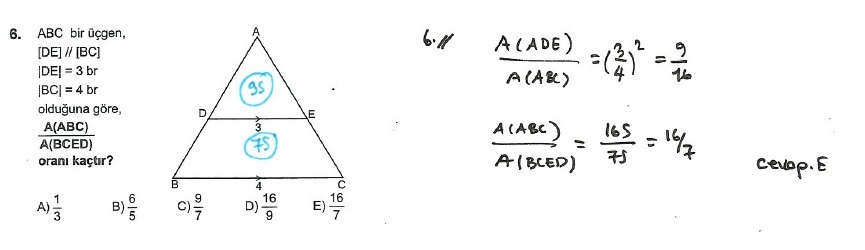 6. ABC bir üçgen,
[DE] // [BC]
|DE| = 3 br
|BC| = 4 br
olduğuna göre,
A(ABC)
A(BCED)
oranı kaçtır?
A
9S
D
E
3
7S
B
4
C
A) 1/3 B) 6/5 C) 9/7 D) 16/9 E) 16/7
6.//
A(ADE)/A(ABC) = (3/4)² = 9/16
A(ABC)/A(BCED) = 16S/7S = 16/7
cevap.E